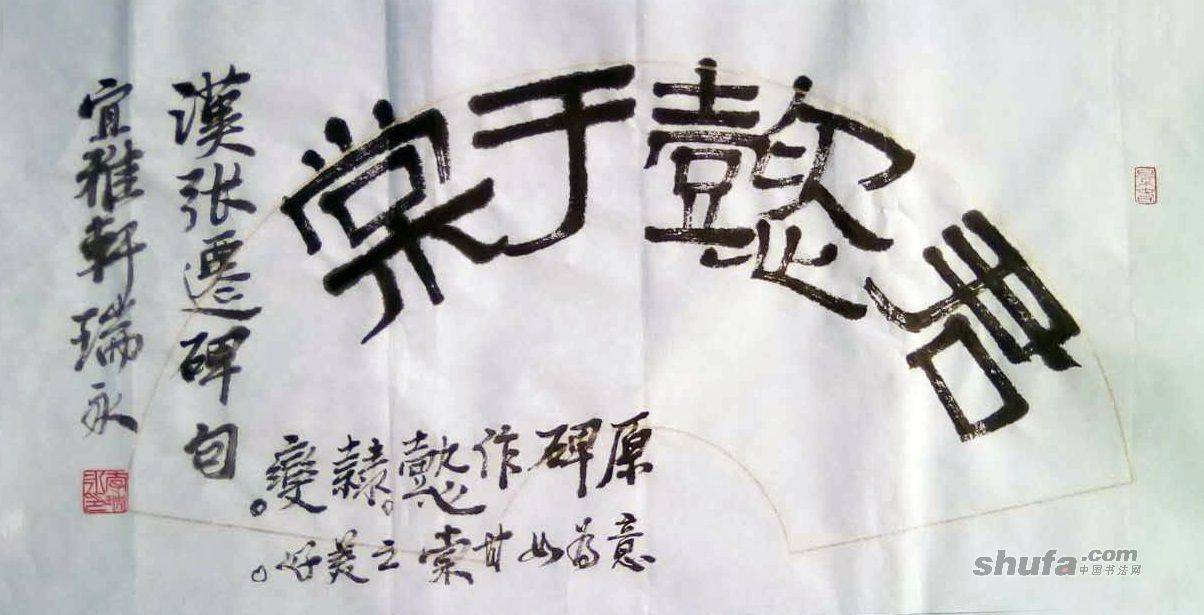 君懿于棠
漢張遷碑句
宜雅軒瑞永
原碑作懿隸變。
意為如甘棠之美好。
shufa.com
中国书法网